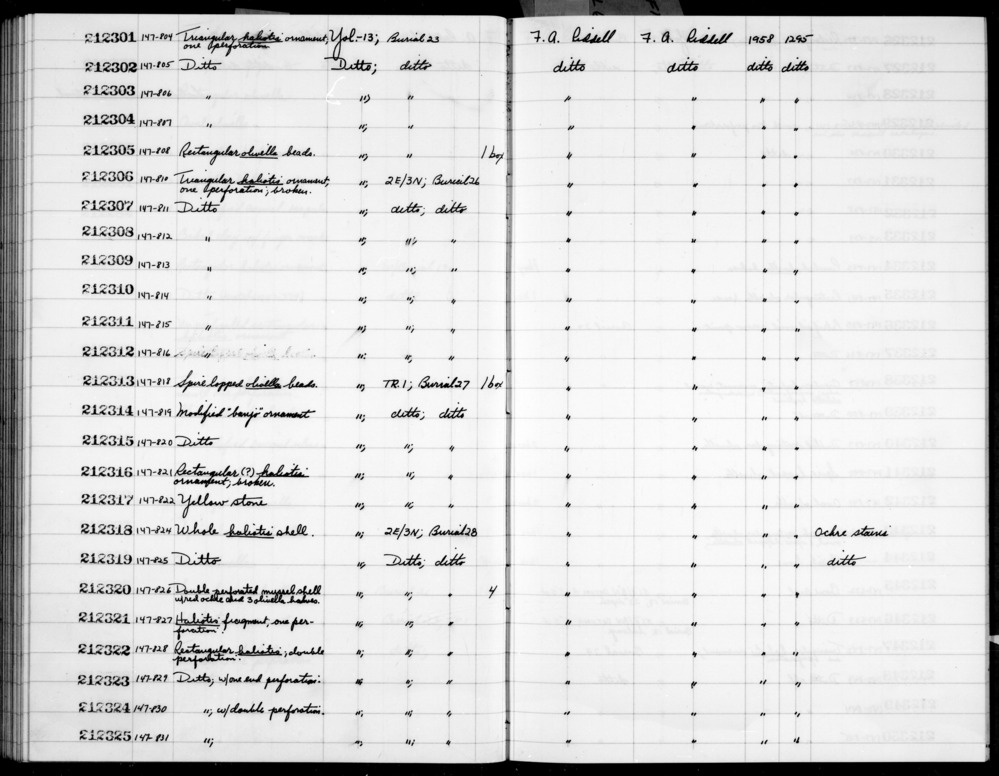 212301 147-804 Triangular haliotis ornament, Yol.-13; Burial 23 F.A. Riddell F.A. Riddell 1958 1295
one perforation
212302 147-805 Ditto Ditto; ditto ditto ditto ditto ditto
212303 147-806 " "; " " " " "
212304 147-807 " "; " " " " "
212305 147-808 Rectangular olivella beads. "; " 1 box " " " "
212306 147-810 Triangular haliotis ornament, "; 2E/3N; Burial 26 " " " "
one perforation; broken.
212307 147-811 Ditto "; ditto; ditto " " " "
212308 147-812 " "; "; " " " " "
212309 147-813 " "; "; " " " " "
212310 147-814 " "; "; " " " " "
212311 147-815 " "; "; " " " " "
212312 147-816 " "; "; " " " " "
212313 147-818 Spire lopped olivella beads. "; TR.1; Burial 27 1 box " " " "
212314 147-819 Modified "banjo" ornament "; ditto; ditto " " " "
212315 147-820 Ditto "; "; " " " " "
212316 147-821 Rectangular (?) haliotis "; "; " " " " "
ornament; broken.
212317 147-822 Yellow stone "; "; " " " " "
212318 147-824 Whole haliotis shell. "; 2E/3N; Burial 28 " " " " Ochre stains
212319 147-825 Ditto "; Ditto; ditto " " " " ditto
212320 147-826 Double-perforated mussel shell "; "; " 4 " " " "
w/red ochre and 3 olivella halves.
212321 147-827 Haliotis fragment, one per- "; "; " " " " "
foration.
212322 147-828 Rectangular haliotis; double "; "; " " " " "
perforation.
212323 147-829 Ditto; w/one end perforation. "; "; " " " " "
212324 147-830 "; w/double perforation. "; "; " " " " "
212325 147-831 "; "; "; " " " " "